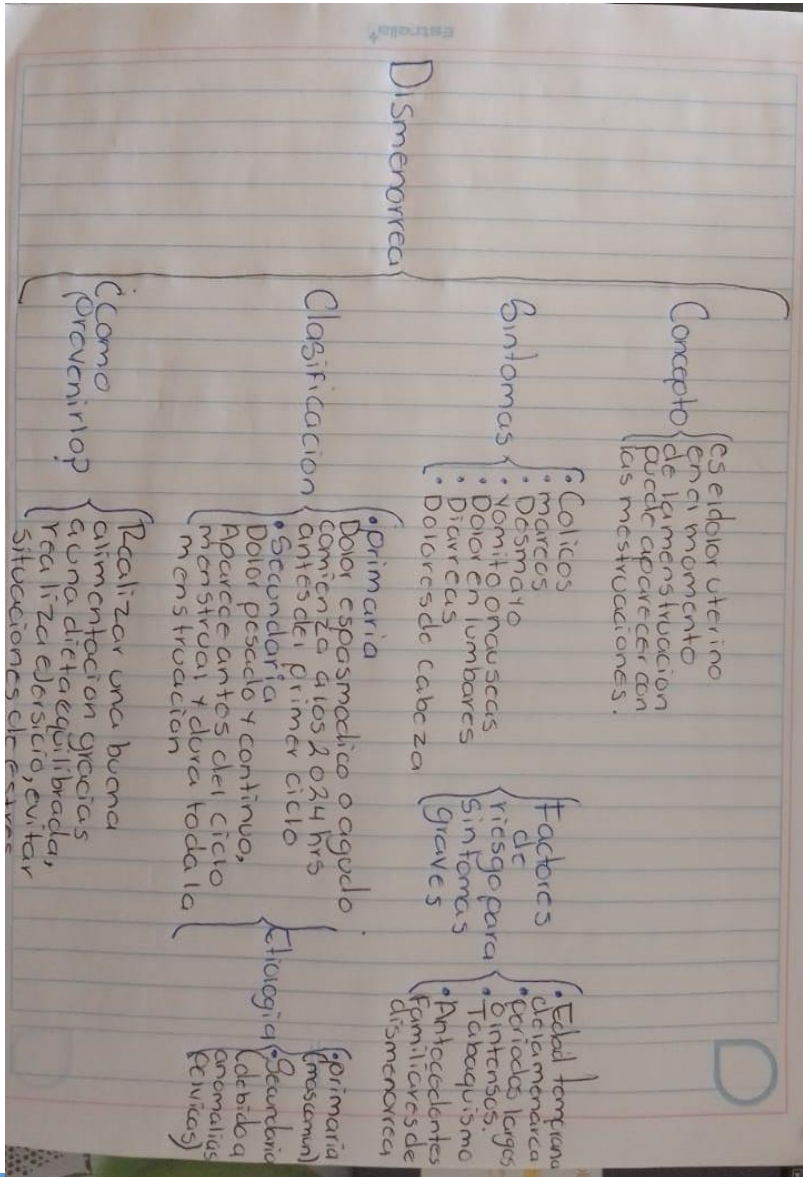 Estrella
Dismenorrea
Concepto
es el dolor uterino
en el momento
de la menstruacion
puede aparecer con
las mestruaciones.
Sintomas
• Colicos
• mareos
• Dosmayo
• vomito o nauseas
• Dolor en lumbares
• Diarreas
• Dolores de cabeza
Factores
de
riesgo para
sintomas
graves
• Edad temprana
de la menarca
• periodos largos
o intensos.
• Tabaquismo
• Antecedentes
familiares de
dismenorrea
Clasificacion
• primaria
Dolor espasmodico o agudo
comienza a los 2 o 24 hrs
antes del primer ciclo
• Secundaria
Dolor pesado y continuo,
Aparece antes del ciclo
menstrual y dura toda la
menstruacion
Etiologia
• primaria
(mas comun)
• Secundaria
(debido a
anomalias
pelvicas)
¿Como
prevenirlo?
Realizar una buena
alimentacion gracias
a una dieta equilibrada,
realiza ejersicio, evitar
situaciones de estres